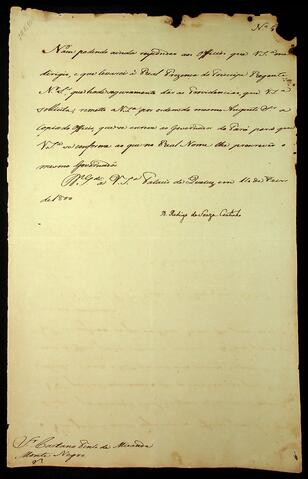 Não podendo ainda responder aos Officios que V.S.ª me
dirigio, e que levarei á Real Prezença do Principe Regente
N. S.r que ha de seguramente dar as Providencias, que V.S.ª
solicita, remetto a V.S.ª por ordem do mesmo Augusto S.r a
Copia do Officio, que se escreve ao Governador do Pará para que
V.S.ª se conforme ao que no Real Nome lhe
mesmo Governador
D.s G.de a V. S.ª Palacio de Queluz em 14 de
de 1800
D. Rodrigo de Souza Coutinho
S.r Caetano Pinto de Miranda
Monte Negro